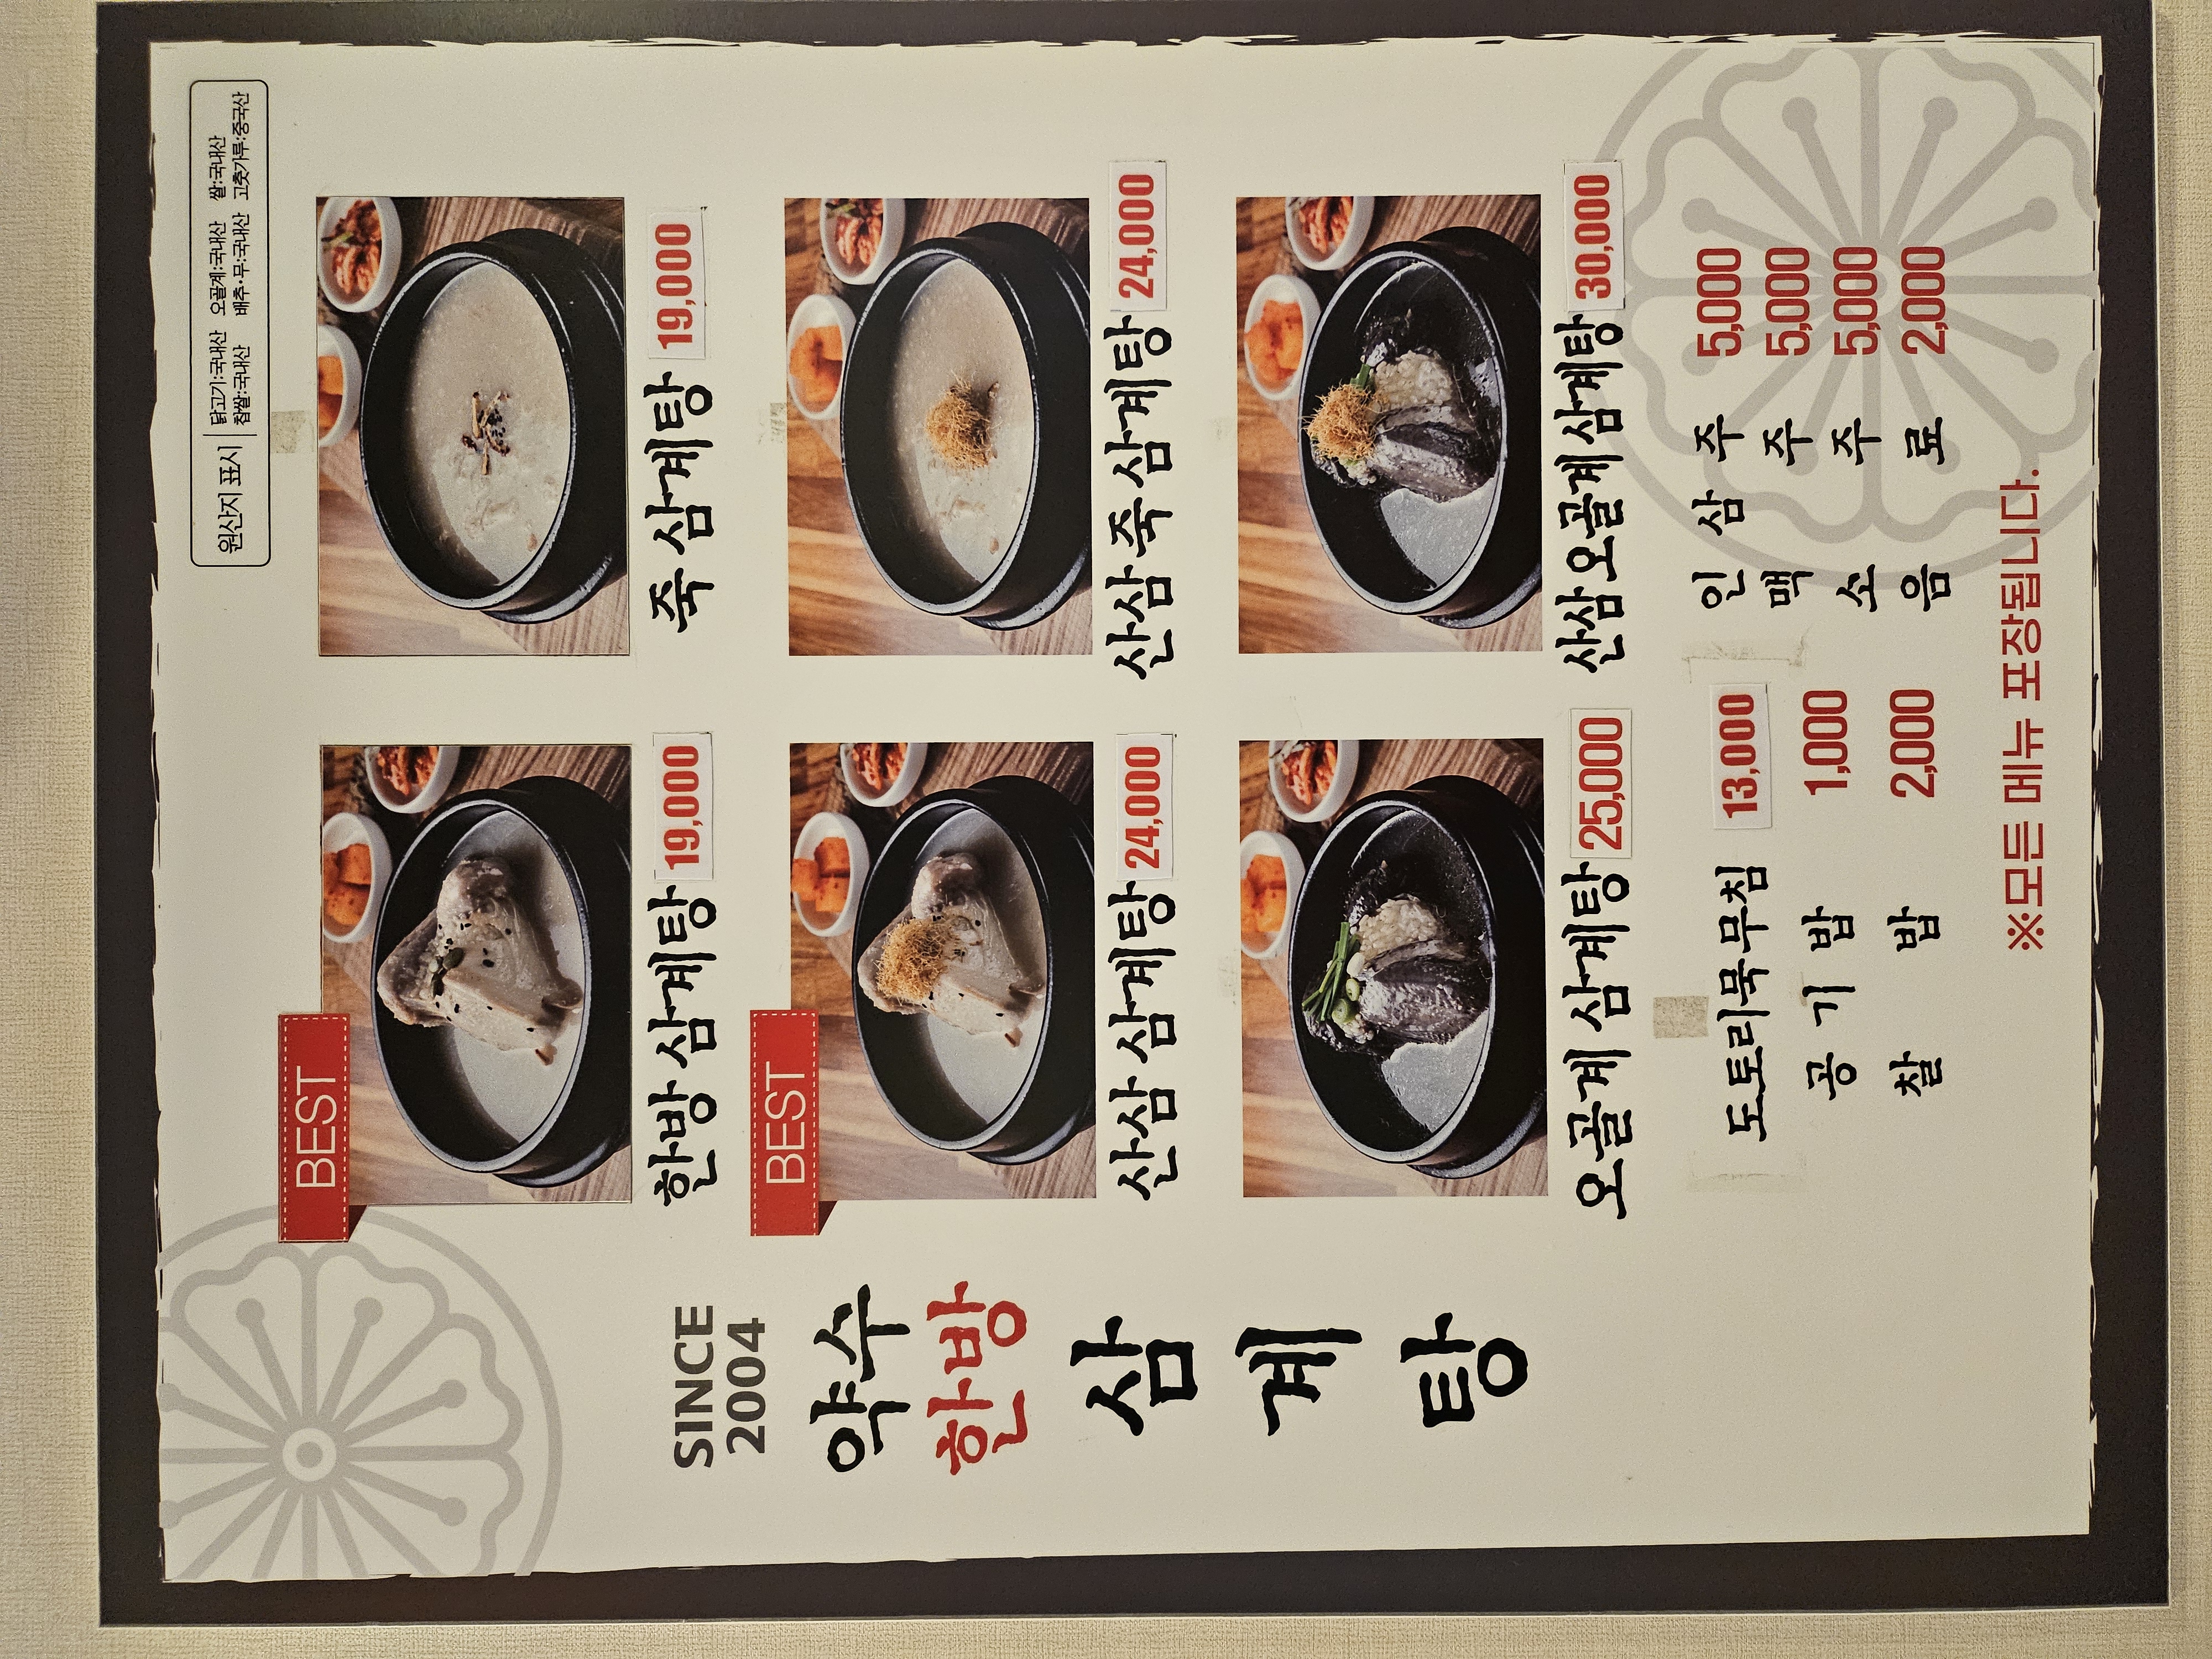 원산지 표시
닭고기:국내산 오골계:국내산 쌀:국내산
찹쌀:국내산 배추·무:국내산 고춧가루:중국산
SINCE
2004
약수
한방
삼
계
탕
BEST
한방 삼계탕 19,000
죽 삼계탕 19,000
BEST
산삼 삼계탕 24,000
산삼 죽 삼계탕 24,000
오골계 삼계탕 25,000
산삼 오골계 삼계탕 30,000
도토리묵무침 13,000
공기밥 1,000
찰밥 2,000
인삼주 5,000
맥주 5,000
소주 5,000
음료 2,000
※모든 메뉴 포장됩니다.